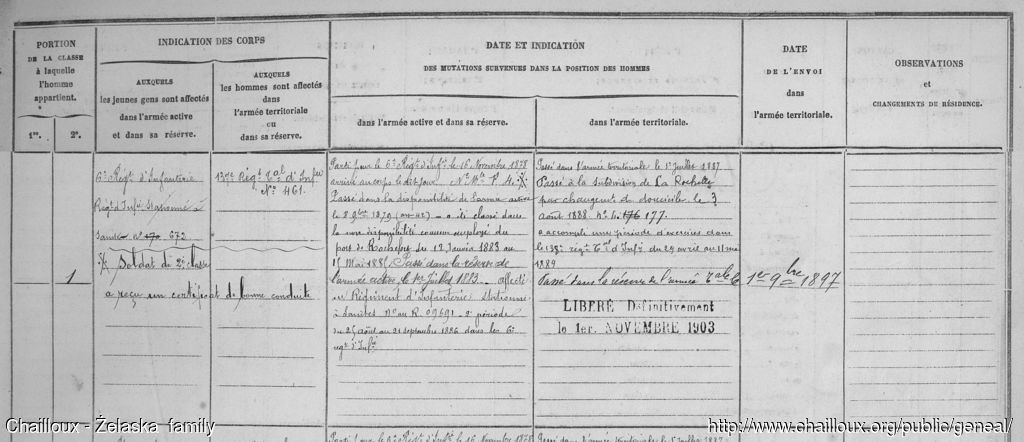 PORTION
DE LA CLASSE
à laquelle
l'homme
appartient.
1re.
2e.
INDICATION DES CORPS
AUXQUELS
les jeunes gens sont affectés
dans l'armée active
et dans sa réserve.
AUXQUELS
les hommes sont affectés
dans
l'armée territoriale
ou
dans sa réserve.
DATE ET INDICATION
DES MUTATIONS SURVENUES DANS LA POSITION DES HOMMES
dans l'armée active et dans sa réserve.
dans l'armée territoriale.
DATE
DE L'ENVOI
dans
l'armée territoriale.
OBSERVATIONS
et
CHANGEMENTS DE RÉSIDENCE.
1
6e Régt d'Infanterie
Régt d'Infie Stationné à
Saintes No 170 673
Soldat de 2e classe
a reçu un certificat de bonne conduite
137e Régt Tal d'Infie
No 461.
Parti pour le 6e Régt d'Infie le 16 Novembre 1878
arrivé au corps le dit jour No Mle
Passé dans la disponibilité de l'armée active
le 8 9bre 1879 classé dans
la non disponibilité comme employé du
port de Rochefort du 12 Janvier 1883 au
Mai 188 Passé dans la réserve de
l'armée active le 1er Juillet 1883 affecté
au Régiment d'Infanterie Stationné
à Saintes No au R. 09691 - 2e période
du 25 août au 21 septembre 1886 dans le 6e
régt d'Infie
Passé dans l'armée territoriale le 1er Juillet 1887
Passé à la subdivision de La Rochelle
par changement de domicile le 3
août 1888 No 176 177.
a accompli une période d'exercices dans
le 138e régt Tal d'Infie du 29 avril au 11 mai
1889
Passé dans la réserve de l'armée Tale le 1er 9bre 1897
LIBÉRÉ Définitivement
le 1er. NOVEMBRE 1903
Parti pour le 6e Régt d'Infie le 16 Novembre 1878
Passé dans l'armée territoriale le 1er Juillet 1887
Chailloux - Żelaska family
http://www.chailloux.org/public/geneal/